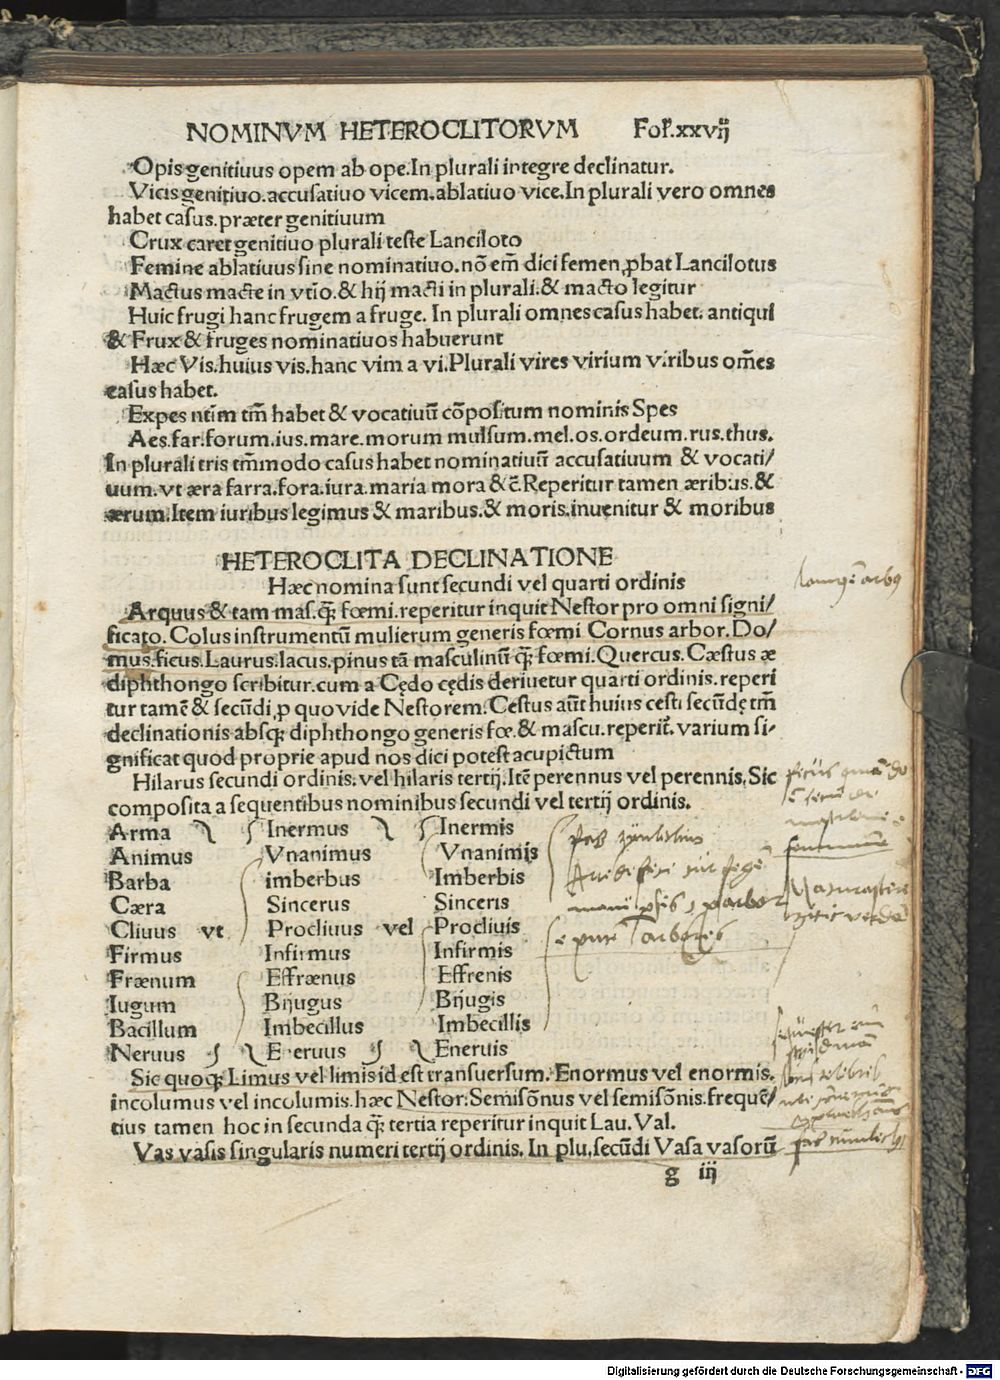 NOMINVM HETEROCLITORVM Fol.xxvij
Opis genitiuus opem ab ope. In plurali integre declinatur.
Vicis genitiuo. accusatiuo vicem. ablatiuo vice. In plurali vero omnes
habet casus. præter genitiuum
Crux caret genitiuo plurali teste Lanciloto
Femine ablatiuus sine nominatiuo. nō em̄ dici femen ꝓbat Lancilotus
Mactus macte in vtīo. & hij macti in plurali. & macto legitur
Huic frugi hanc frugem a fruge. In plurali omnes casus habet. antiqui
& Frux & fruges nominatiuos habuerunt
Hæc Vis. huius vis. hanc vim a vi. Plurali vires virium viribus om̄es
casus habet.
Expes ntīm tm̄ habet & vocatiuū cōpositum nominis Spes
Aes. far. forum. ius. mare. morum mulsum. mel. os. ordeum. rus. thus.
In plurali tris tm̄modo casus habet nominatiuū accusatiuum & vocati/
uum. vt æra farra. fora. iura. maria mora & c̄. Reperitur tamen æribus. &
ærum. Item iuribus legimus & maribus. & moris. inuenitur & moribus
HETEROCLITA DECLINATIONE
Hæc nomina sunt secundi vel quarti ordinis
Arquus & tam mas. q̄ꝫ fœmi. reperitur inquit Nestor pro omni signi/
ficato. Colus instrumentū mulierum generis fœmi Cornus arbor. Do/
mus. ficus. Laurus. lacus. pinus tā masculinū q̄ꝫ fœmi. Quercus. Cæstus æ
diphthongo scribitur. cum a Cędo cędis deriuetur quarti ordinis. reperi
tur tamē & secūdi, p quo vide Nestorem. Cestus aūt huius cesti secūdę tm̄
declinationis absqꝫ diphthongo generis fœ. & mascu. reperiť. varium si/
gnificat quod proprie apud nos dici potest acupictum
Hilarus secundi ordinis. vel hilaris tertij. Itē perennus vel perennis. Sic
composita a sequentibus nominibus secundi vel tertij ordinis.
Arma Inermus Inermis
Animus Vnanimus Vnanimis
Barba imberbus Imberbis
Cæra Sincerus Sinceris
Cliuus vt Procliuus vel Procliuis
Firmus Infirmus Infirmis
Frænum Effrænus Effrenis
Iugum Bijugus Bijugis
Bacillum Imbecillus Imbecillis
Neruus Eneruus Eneruis
Sic quoqꝫ Limus vel limis id est transuersum. Enormus vel enormis.
incolumus vel incolumis. hæc Nestor. Semisōnus vel semisōnis. frequē/
tius tamen hoc in secunda q̄ꝫ tertia reperitur inquit Lau. Val.
Vas vasis singularis numeri tertij ordinis. In plu. secūdi Vasa vasorū
g iij
Digitalisierung gefördert durch die Deutsche Forschungsgemeinschaft - DFG